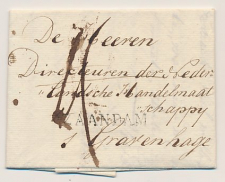 De Heeren
Directeuren der Neder
landsche Handelmaat
schappy
ZAANDAM
Gravenhage